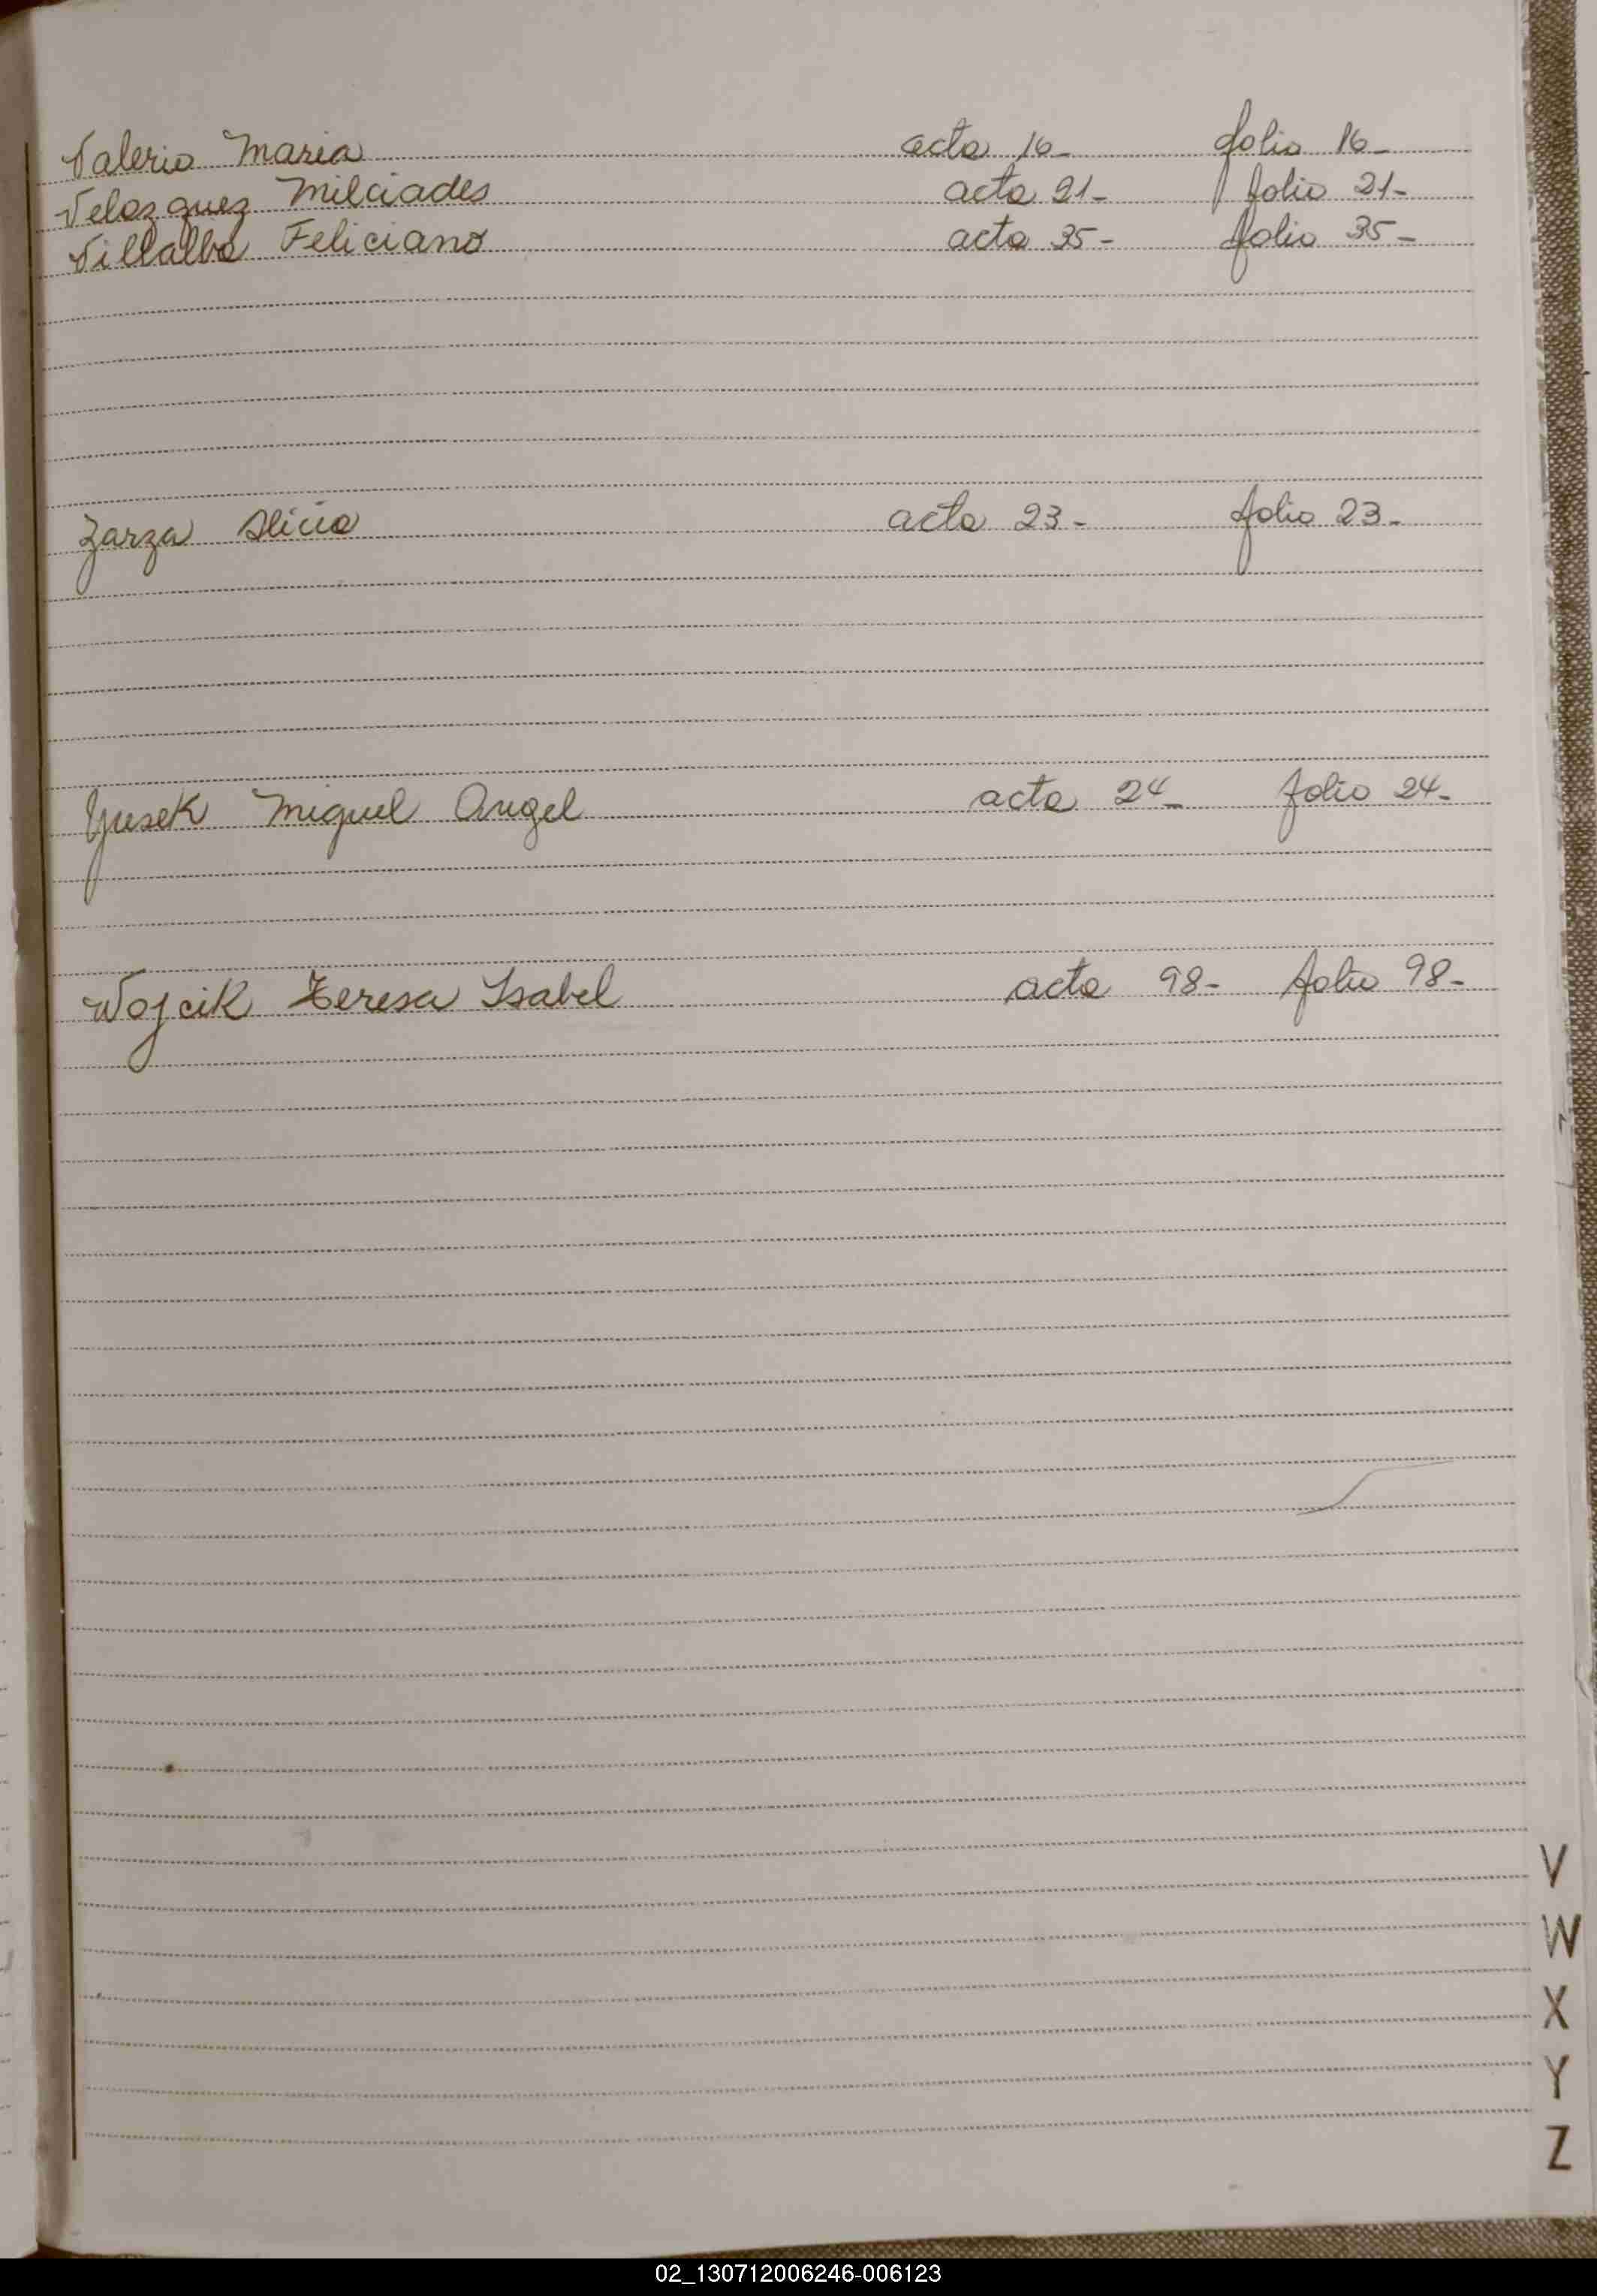 Valerio Maria acta 16- folio 16-
Velozquez Milciades acta 21- folio 21-
Villalba Feliciano acta 35- folio 35-
Zarza Alicia acta 23- folio 23-
Yusek Miguel Angel acta 24- folio 24-
Wojcik Teresa Isabel acta 98- folio 98-
V
W
X
Y
Z
02_130712006246-006123